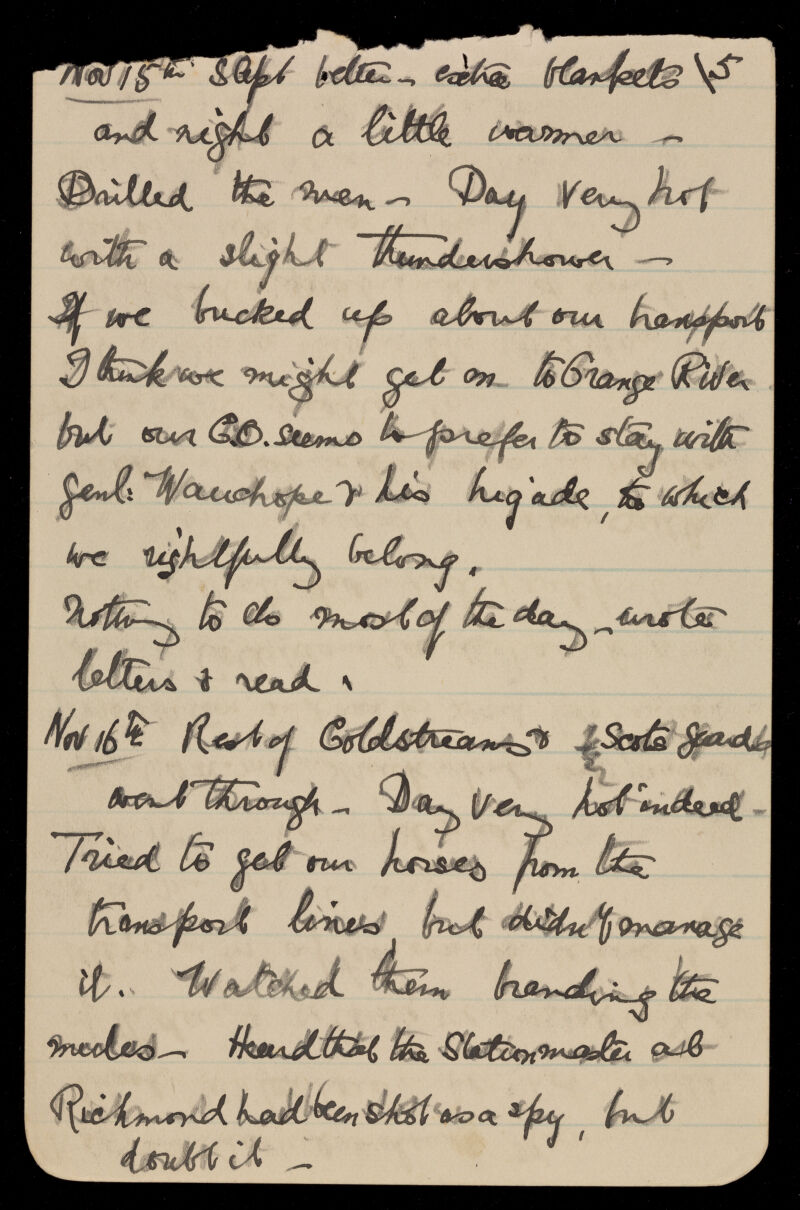 Nov 15th Slept better – extra blankets \5
and night a little warmer –
Drilled the men – Day very hot
with a slight thundershower –
If we bucked up about our transport
I think we might get on to Orange River
but our C.O. seems to prefer to stay with
Genl: Wauchope & his brigade, to which
we rightfully belong.
Nothing to do most of the day – wrote
letters & read.
Nov 16th Rest of Coldstreams & Scots Guards
went through – Day very hot indeed –
Tried to get our horses from the
transport lines, but didn't manage
it. Watched them branding the
mules – Heard that the Stationmaster at
Richmond had been shot as a spy, but
doubt it –